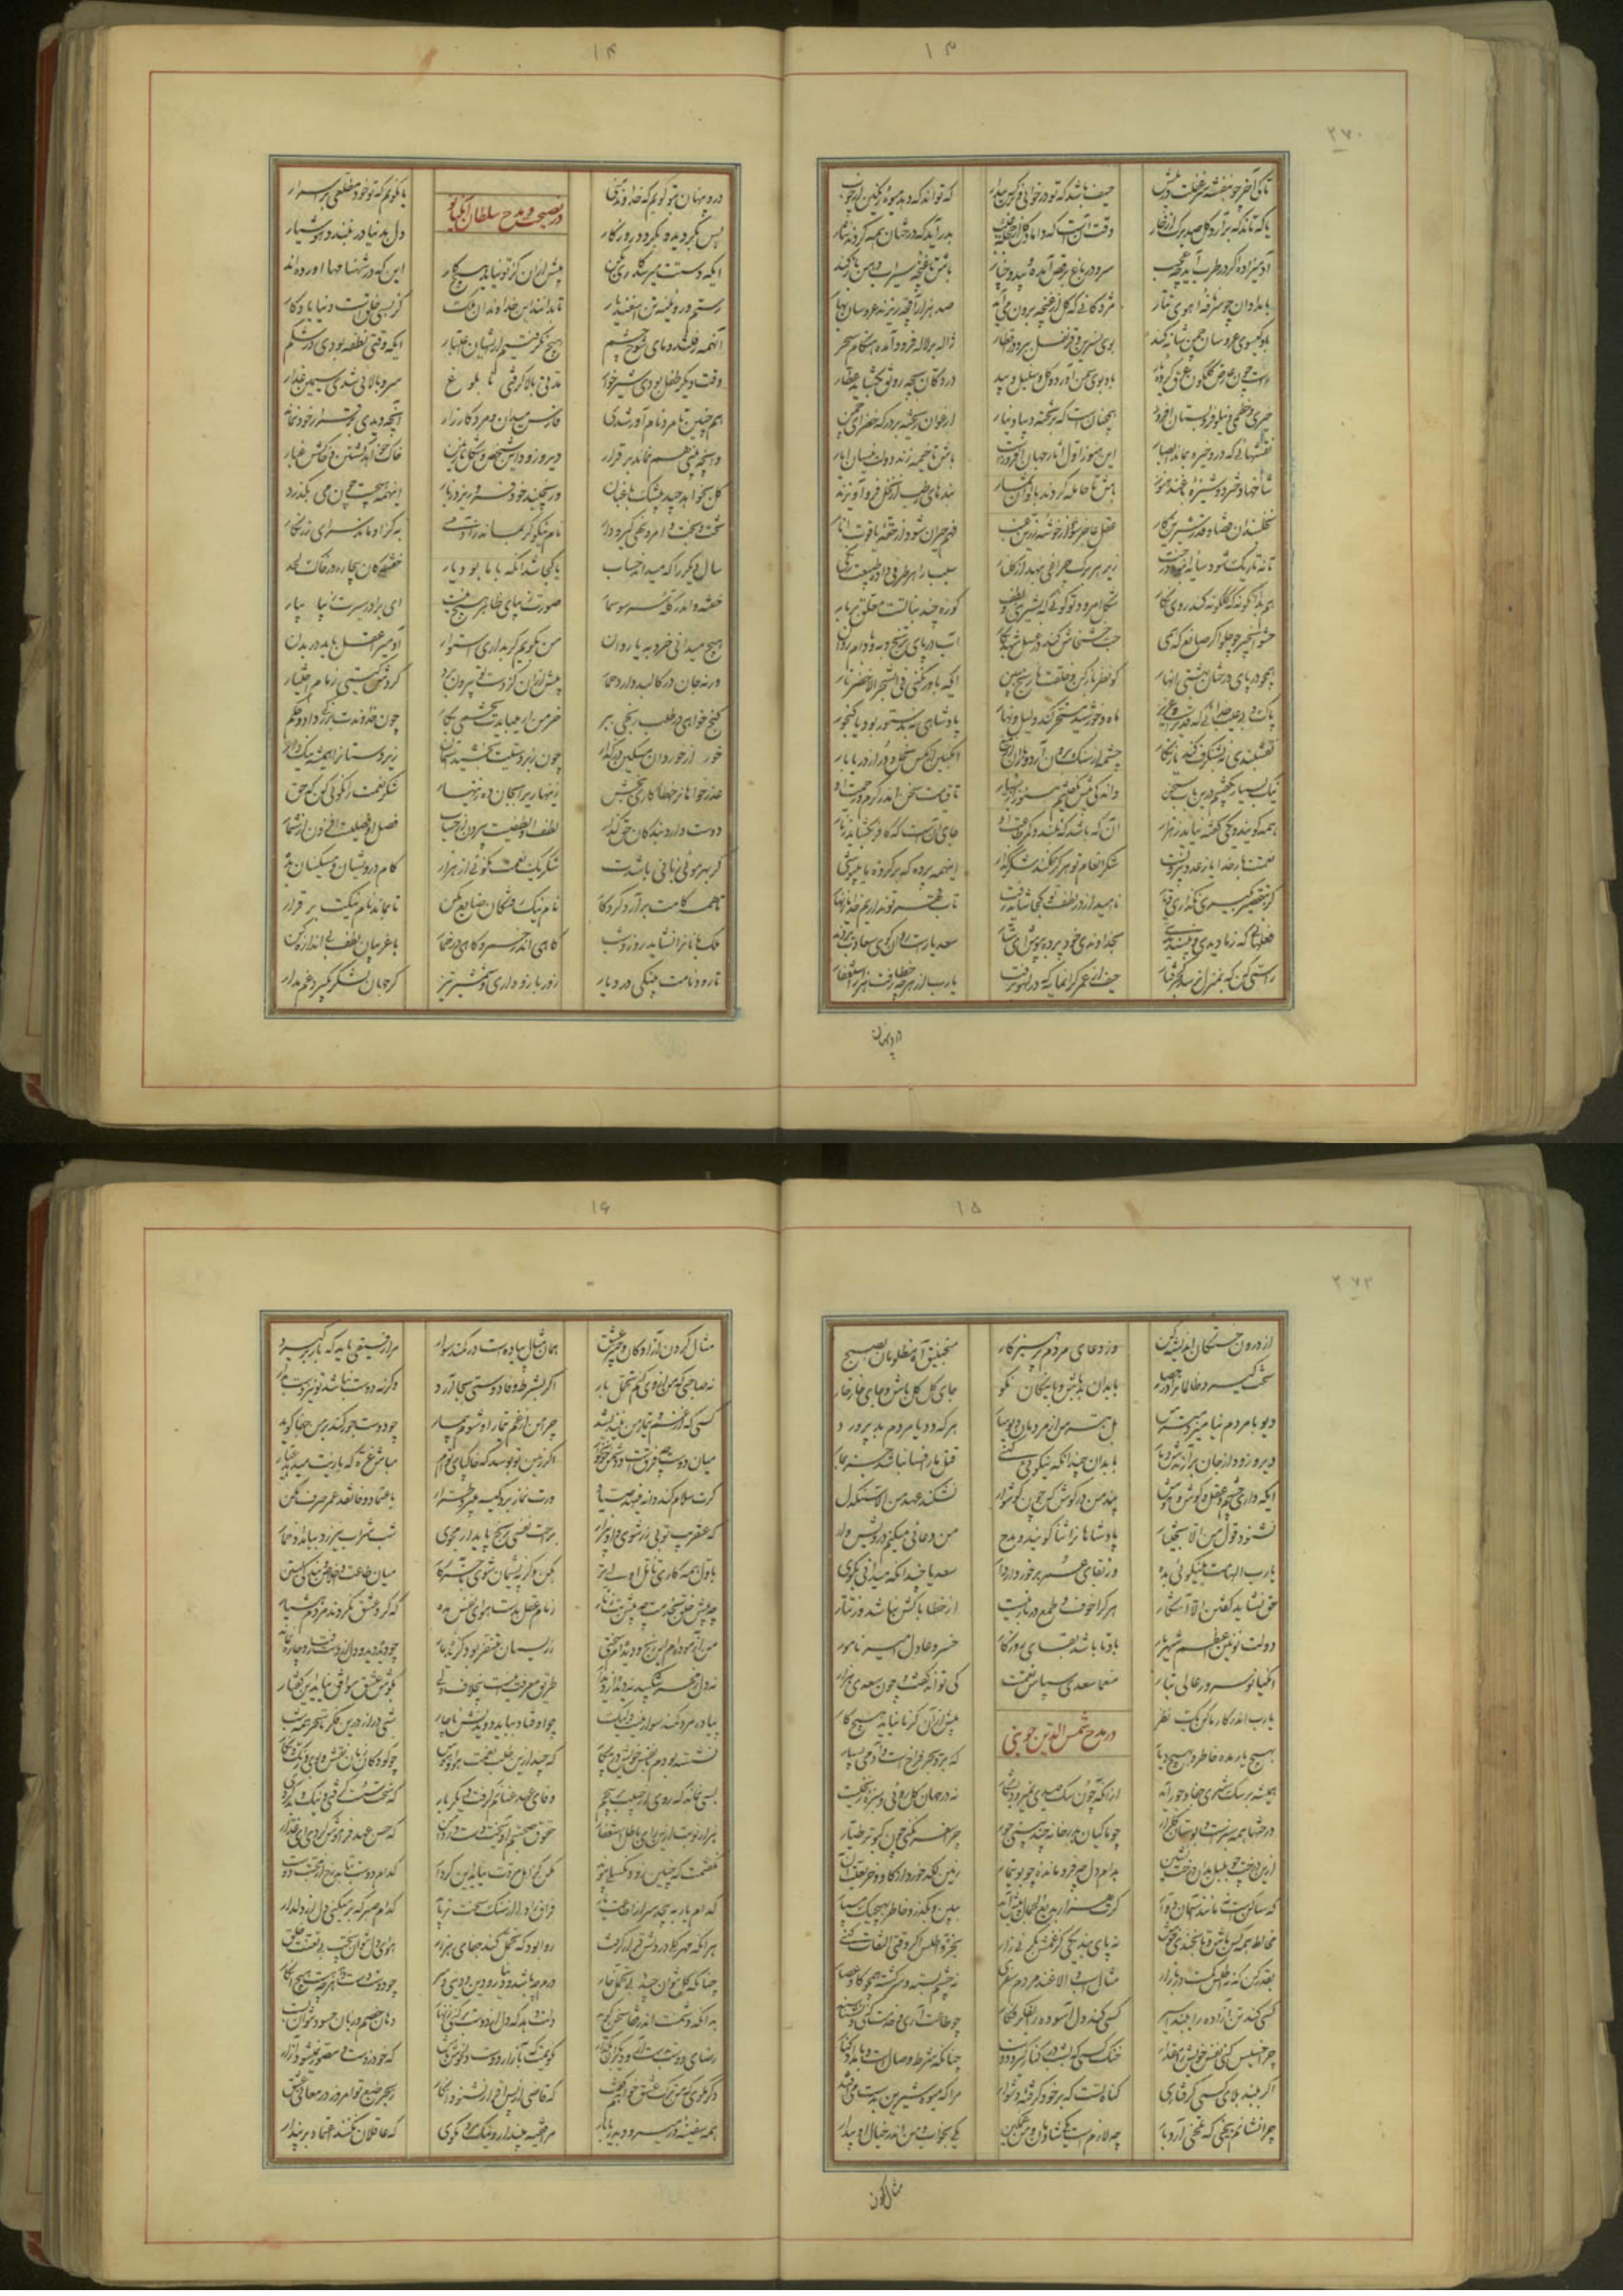 ۱۳
۲۷۰
تا کی آخر چو بنفشه سر غفلت در پیش حیف باشد که تو در خوابی و نرگس بیدار که تواند که دهد میوه رنگین از چوب
یا که تاند که برآرد گل صد برگ از خار وقت آنست که داماد گل از حجله غیب بدر آید که درختان همه کردند نثار
آدمیزاده اگر در طرب آید چه عجب سرو در باغ برقص آمده و بید و چنار باش تا غنچه سیراب دهن باز کند
بامدادان چو سر نافه آهوی تتار مژدگانی که گل از غنچه برون می آید صد هزار اقچه بریزند عروسان بهار
باد گیسوی عروسان چمن شانه کند بوی نسرین و قرنفل ببرد در اقطار ژاله بر لاله فرود آمده هنگام سحر
راست چون عارض گلگون عرق کرده یار باد بوی سمن آورد و گل و سنبل و بید در دکان بچه رونق بگشاید عطار
خیری و خطمی و نیلوفر و بستان افروز همچنانست که بر تخته دیبا دینار ارغوان ریخته بر درگه خضرای چمن
نقشهائی که درو خیره بماند ابصار این هنوز اول آثار جهان افروزیست باش تا خیمه زند دولت نیسان و ایار
شاخها دختر دوشیزه باغند هنوز باش تا حامله گردند بالوان ثمار بندهای رطب از نخل فرو آویزند
نخلبندان قضا و قدر شیرین کار عقل عاجز شود از خوشه زرین عنب فهم حیران شود از حقه یاقوت انار
تا نه تاریک شود سایه انبوه درخت زیر هر برگ چراغی بنهد از گلنار سیب را هر طرفی داده طبیعت رنگی
هم بدانگونه که گلگونه کند روی نگار شکل امرود تو گوئی که بشیرینی و لطف کوزه چند نباتست معلق بر بار
حشو انجیر چو حلواگر صانع که همی حب خشخاش کند در عسل شهد بکار آب در پای ترنج و به و بادام روان
همچو در پای درختان بهشتی انهار گو نظر باز کن و خلقت نارنج ببین ایکه باور نکنی فی الشجر الاخضر نار
پاک و بی عیب خدائی که بتقدیر عزیز ماه و خورشید مسخر کند و لیل و نهار پادشاهی نه بدستور بود یا گنجور
نقشبندی نه بشنگرف کند یا زنگار چشمه از سنگ برون آرد و باران از میغ انگبین از مگس نحل و در از دریا بار
نیک بسیار بگفتیم درین باب سخن واندکی بیش نگفتیم هنوز از بسیار تا قیامت سخن اندر کرم و رحمت او
همه گویند و یکی گفته نیاید ز هزار آن که باشد که نبندد کمر طاعت او جای آنست که کافر بگشاید زنار
نعمتت بار خدایا ز عدد بیرونست شکر انعام تو هرگز نکند شکرگزار اینهمه پرده که بر کرده ما میپوشی
گر بتقصیر بگیری نگذاری دیار ناامید از در لطف تو کجا شاید رفت تاب قهر تو نداریم خدایا زنهار
فعلهائی که ز ما دیدی و نپسندیدی بخداوندی خود پرده بپوش ای ستار سعدیا راست روان گوی سعادت بردند
راستی کن که بمنزل نرسد کج رفتار حیف ازین عمر گرانمایه که در لغو برفت یارب از هرچه خطا رفت هزار استغفار
درد پنهان
۱۴
درد پنهان بتو گویم که خداوند منی یا نگویم که تو خود مطلعی بر اسرار
در نصیحت و مدح سلطان انکیانو
بس بگردید و بگردد روزگار دل بدنیا در نبندد هوشیار
ایکه دستت میرسد کاری بکن پیش از آن کز تو نیاید هیچ کار این که در شهنامها آورده اند
رستم و رویینه تن اسفندیار تا بدانند این خداوندان ملک کز بسی خلقست دنیا یادگار
اینهمه رفتند و مای شوخ چشم هیچ نگرفتیم از ایشان اعتبار ایکه وقتی نطفه بودی در شکم
وقت دیگر طفل بودی شیرخوار مدتی بالا گرفتی تا بلوغ سرو بالائی شدی سیمین عذار
همچنین تا مرد نام آور شدی فارس میدان و مرد کارزار آنچه دیدی بر قرار خود نماند
وآنچه بینی هم نماند بر قرار دیر و زود این شخص و شکل نازنین خاک خواهد گشتن و خاکش غبار
گل بخواهد چید بیشک باغبان ور نچیند خود فرو ریزد ز بار اینهمه هیچست چون می بگذرد
تخت و بخت و امر و نهی و گیر و دار نام نیکو گر بماند ز آدمی به کزو ماند سرای زرنگار
سال دیگر را که میداند حساب یا کجا شد آنکه با ما بود پار خفتگان بیچاره در خاک لحد
خفته اندر کله سر سوسمار صورت زیبای ظاهر هیچ نیست ای برادر سیرت زیبا بیار
هیچ میدانی خرد به یا روان من بگویم گر بداری استوار آدمی را عقل باید در بدن
ورنه جان در کالبد دارد حمار پیش از آن کز دست بیرونت برد گردش گیتی زمام اختیار
گنج خواهی در طلب رنجی ببر خرمن ار میبایدت تخمی بکار چون خداوندت بزرگی داد و حکم
خرده از خردان مسکین درگذار چون زبردستیت بخشید آسمان زیردستانرا همیشه نیک دار
عذرخواهانرا خطاکاری ببخش زینهاری را بجان ده زینهار شکر نعمت را نکوئی کن که حق
دوست دارد بندگان حقگزار لطف او لطفیست بیرون از حساب فضل او فضلیست افزون از شمار
گر بهر موئی زبانی باشدت شکر یک نعمت نگوئی از هزار کام درویشان و مسکینان بده
تا همه کامت برآرد کردگار نام نیک رفتگان ضایع مکن تا بماند نام نیکت بر قرار
ملک بانانرا نشاید روز و شب گاهی اندر خمر و گاهی در خمار با غریبان لطف بی اندازه کن
تا رود نامت بنیکی در دیار زور بازو داری و شمشیر تیز گر جهان لشکر بگیرد غم مدار
۱۵
۲۷۲
از درون خستگان اندیشه کن وز دعای مردم پرهیزکار منجنیق آه مظلومان بصبح
سخت گیرد ظالمانرا در حصار با بدان بد باش و با نیکان نکو جای گل گل باش و جای خار خار
دیو با مردم نیامیزد مترس بل بترس از مردمان دیوسار هر که دد یا مردم بد پرورد
دیر و زود از جان برآرندش دمار با بدان چندانکه نیکوئی کنی قتل مار افسا نباشد جز بمار
ایکه داری چشم و عقل و گوش و هوش پند من در گوش کن چون گوشوار نشکند عهد من الا سنگدل
نشنود قول من الا بختیار پادشاهانرا ثنا گویند و مدح من دعائی میکنم درویش وار
یارب الهامش بنیکوئی بده وز بقای عمر برخوردار دار سعدیا چندانکه میدانی بگوی
حق نشاید گفتن الا آشکار هر کرا خوف و طمع در بار نیست از خطا باکش نباشد وز تتار
دولت نوئین اعظم شهریار باد تا باشد بقای روزگار خسرو عادل امیر نامور
انکیانو سرور عالی تبار منعما سعدی سپاس نعمتت کی تواند گفت و چون سعدی هزار
یارب اندر کار ما کن یک نظر پیش از آن کز ما نیاید هیچ کار
در مدح شمس الدین جوینی
بهیچ یار مده خاطر و بهیچ دیار که بر و بحر فراخست و آدمی بسیار
همیشه بر سگ شهری جفا و جور آید از آنکه چون سگ صیدی نمیرود بشکار نه در جهان گل روئی و سبزه زنخیست
درختها همه سبزند و بوستان گلزار چو ماکیان بدر خانه چند بینی جور چرا سفر نکنی چون کبوتر طیار
ازین درخت چو بلبل بدان درخت نشین بدام دل چه فرومانده چو بوتیمار زمین لگد خورد از گاو و خر بعلت آن
که ساکنست نه مانند آسمان دوار گرت هزار بدیع الجمال پیش آید ببین و بگذر و خاطر بهیچیک مسپار
مخالط همه کس باش تا بخندی خوش نه پای بند یکی کز غمش بگریی زار بخز و اطلس اگر وقتی التفات کنی
بقدر کن که نه اطلس کمست در بازار مثال اسب الاغند مردم سفری نه چشم بسته و سرگشته همچو گاو عصار
کسی کند تن آزاده را ببند اسیر کسی کند دل آسوده را بفکر فگار چو طاعت آری و خدمت کنی و نشناسند
چرا خسیس کنی نفس خویش را مقدار خنک کسی که بشب در کنار گیرد دوست چنانکه شرط وصالست و بامداد کنار
اگر ببند بلای کسی گرفتاری گناه تست که بر خود گرفته دشوار مرا که میوه شیرین بدست می افتد
چرا نشانم بیخی که تلخی آرد بار چه لازمست یکی شادمان و من غمگین یکی بخواب و من اندر خیال او بیدار
مثال گردن
۱۶
مثال گردن آزادگان و چنبر عشق همان مثال پیاده است در کمند سوار مرا رفیقی باید که بار برگیرد
نه صاحبی که من از وی کنم تحمل بار اگر بشرط وفا دوستی بجا آرد وگرنه دوست نباشد تو نیز دست بدار
کسی که از غم و تیمار من نیندیشد چرا من از غم و تیمار او شوم بیمار چو دوست جور کند بر من و جفا گوید
میان دوست چه فرقست و دشمن خونخوار اگر زمین تو بوسد که خاکپای توام مباش غره که بازیت میدهد عیار
گرت سلام کند دانه مینهد صیاد ورت نماز برد کیسه میبرد طرار باعتماد وفا نقد عمر صرف مکن
که عنقریب تو بی زر شوی و او بیزار براحت نفسی رنج پایدار مجوی شب شراب نیرزد ببامداد خمار
باول همه کاری تامل اولیتر بکن وگرنه پشیمان شوی بآخر کار میان طاعت و اخلاص و بندگی بستن
چه پیش خلق بخدمت چه پیش بت زنار زمام عقل بدست هوای نفس مده که گرد عشق نگردند مردم هشیار
من آزموده ام این رنج و دیده ام سختی ز ریسمان متنفر بود گزیده مار چو دیده دید و دل از دست رفت و چاره نماند
نه دل ز مهر شکیبد نه دیده از دیدار طریق معرفت اینست بیخلاف ولی بگوش عشق موافق نیاید این گفتار
پیاده مرد کمند سوار نیست ولیک چو اوفتاد بباید دویدنش ناچار شبی دراز درین فکر تا سحر همه شب
نشسته بودم با نفس خویش در پیکار که چند ازین طلب شهوت و هوا و هوس چو کودکان و زنان نقش و بوی و رنگ و نگار
بسی نماند که روی از حبیب برپیچم وفای عهد عنانم گرفت دیگر بار که سخت سست گرفتی و نیک بد کردی
هزار نوبت ازین رای باطل استغفار حقوق صحبتم آویخت دست در دامن که حسن عهد فراموش کردی
نگفتمت که چنین زود بگسلی پیمان مکن کز اهل مروت نیاید این کردار کدام دوست بتابد رخ از محبت دوست
کدام یار بپیچد سر از ارادت یار فراق را دلی از سنگ سخت تر باید کدام صبر که بر میکنی دل از دلدار
هر آنکه مهر یکی در دلش قرار گرفت روا بود که تحمل کند جفای هزار هوای دل نتوان پخت بی تعنت خلق
چنانکه گل نتوان چید بی تحمل خار درم چه باشد و دینار و دین و دنیی و سر چو دوست دست دهد هر چه هست هیچ انگار
بدانکه دشمنت اندر قفا سخن گوید دلت دهد که دل از دوست برکنی زنهار دهان خصم و زبان حسود نتوان بست
رضای دوست بدست آر و دیگران بگذار نگویمت که بر آزار دوست دل خوش کن که خود ز دوست مصور نمیشود آزار
دگر مگوی که من ترک عشق خواهم گفت که قاضی از پس اقرار نشنود انکار ز بحر طبع تو امروز در معانی عشق
همه سفینه در میرود بدریا بار که عاقلان نکنند اعتماد بر پندار